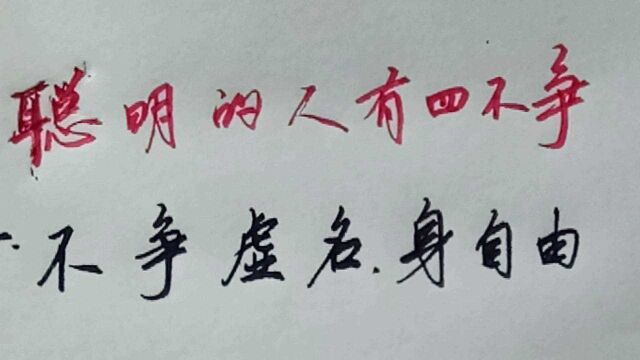 聪明的人有四不争
不争虚名.身自由